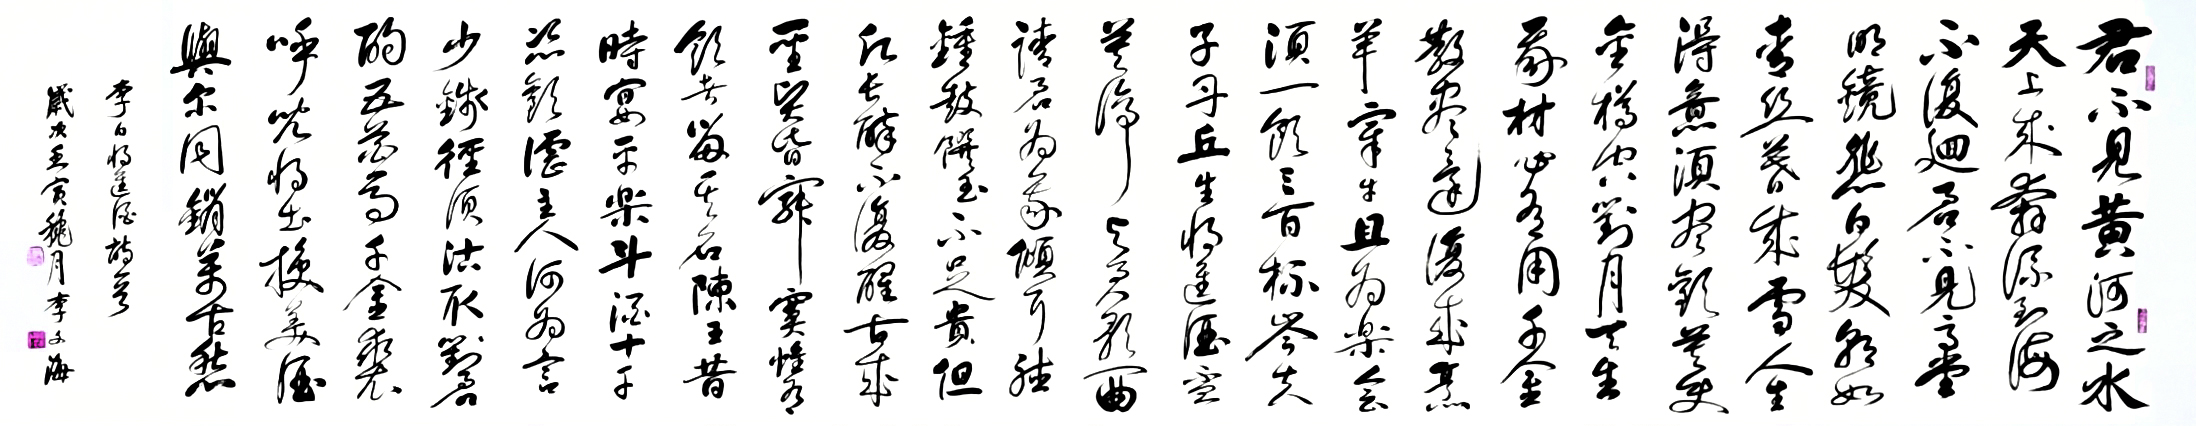 君不見黄河之水
天上来奔流到海
不復廻君不見高堂
明鏡悲白髮朝如
青丝暮成雪人生
得意須尽歡莫使
金樽空對月天生
我材必有用千金
散尽還復来烹
羊宰牛且为樂会
須一飲三百杯岑夫
子丹丘生将進酒盃
莫停与君歌一曲
請君为我傾耳聴
鍾鼓饌玉不足貴但
願長醉不復醒古来
聖賢皆寂寞惟有
飲者留其名陳王昔
時宴平樂斗酒十千
恣歡謔主人何为言
少錢徑須沽取對君
酌五花馬千金裘
呼児将出換美酒
與尔同銷萬古愁
李白将進酒詩
歲次壬寅穐月李文海